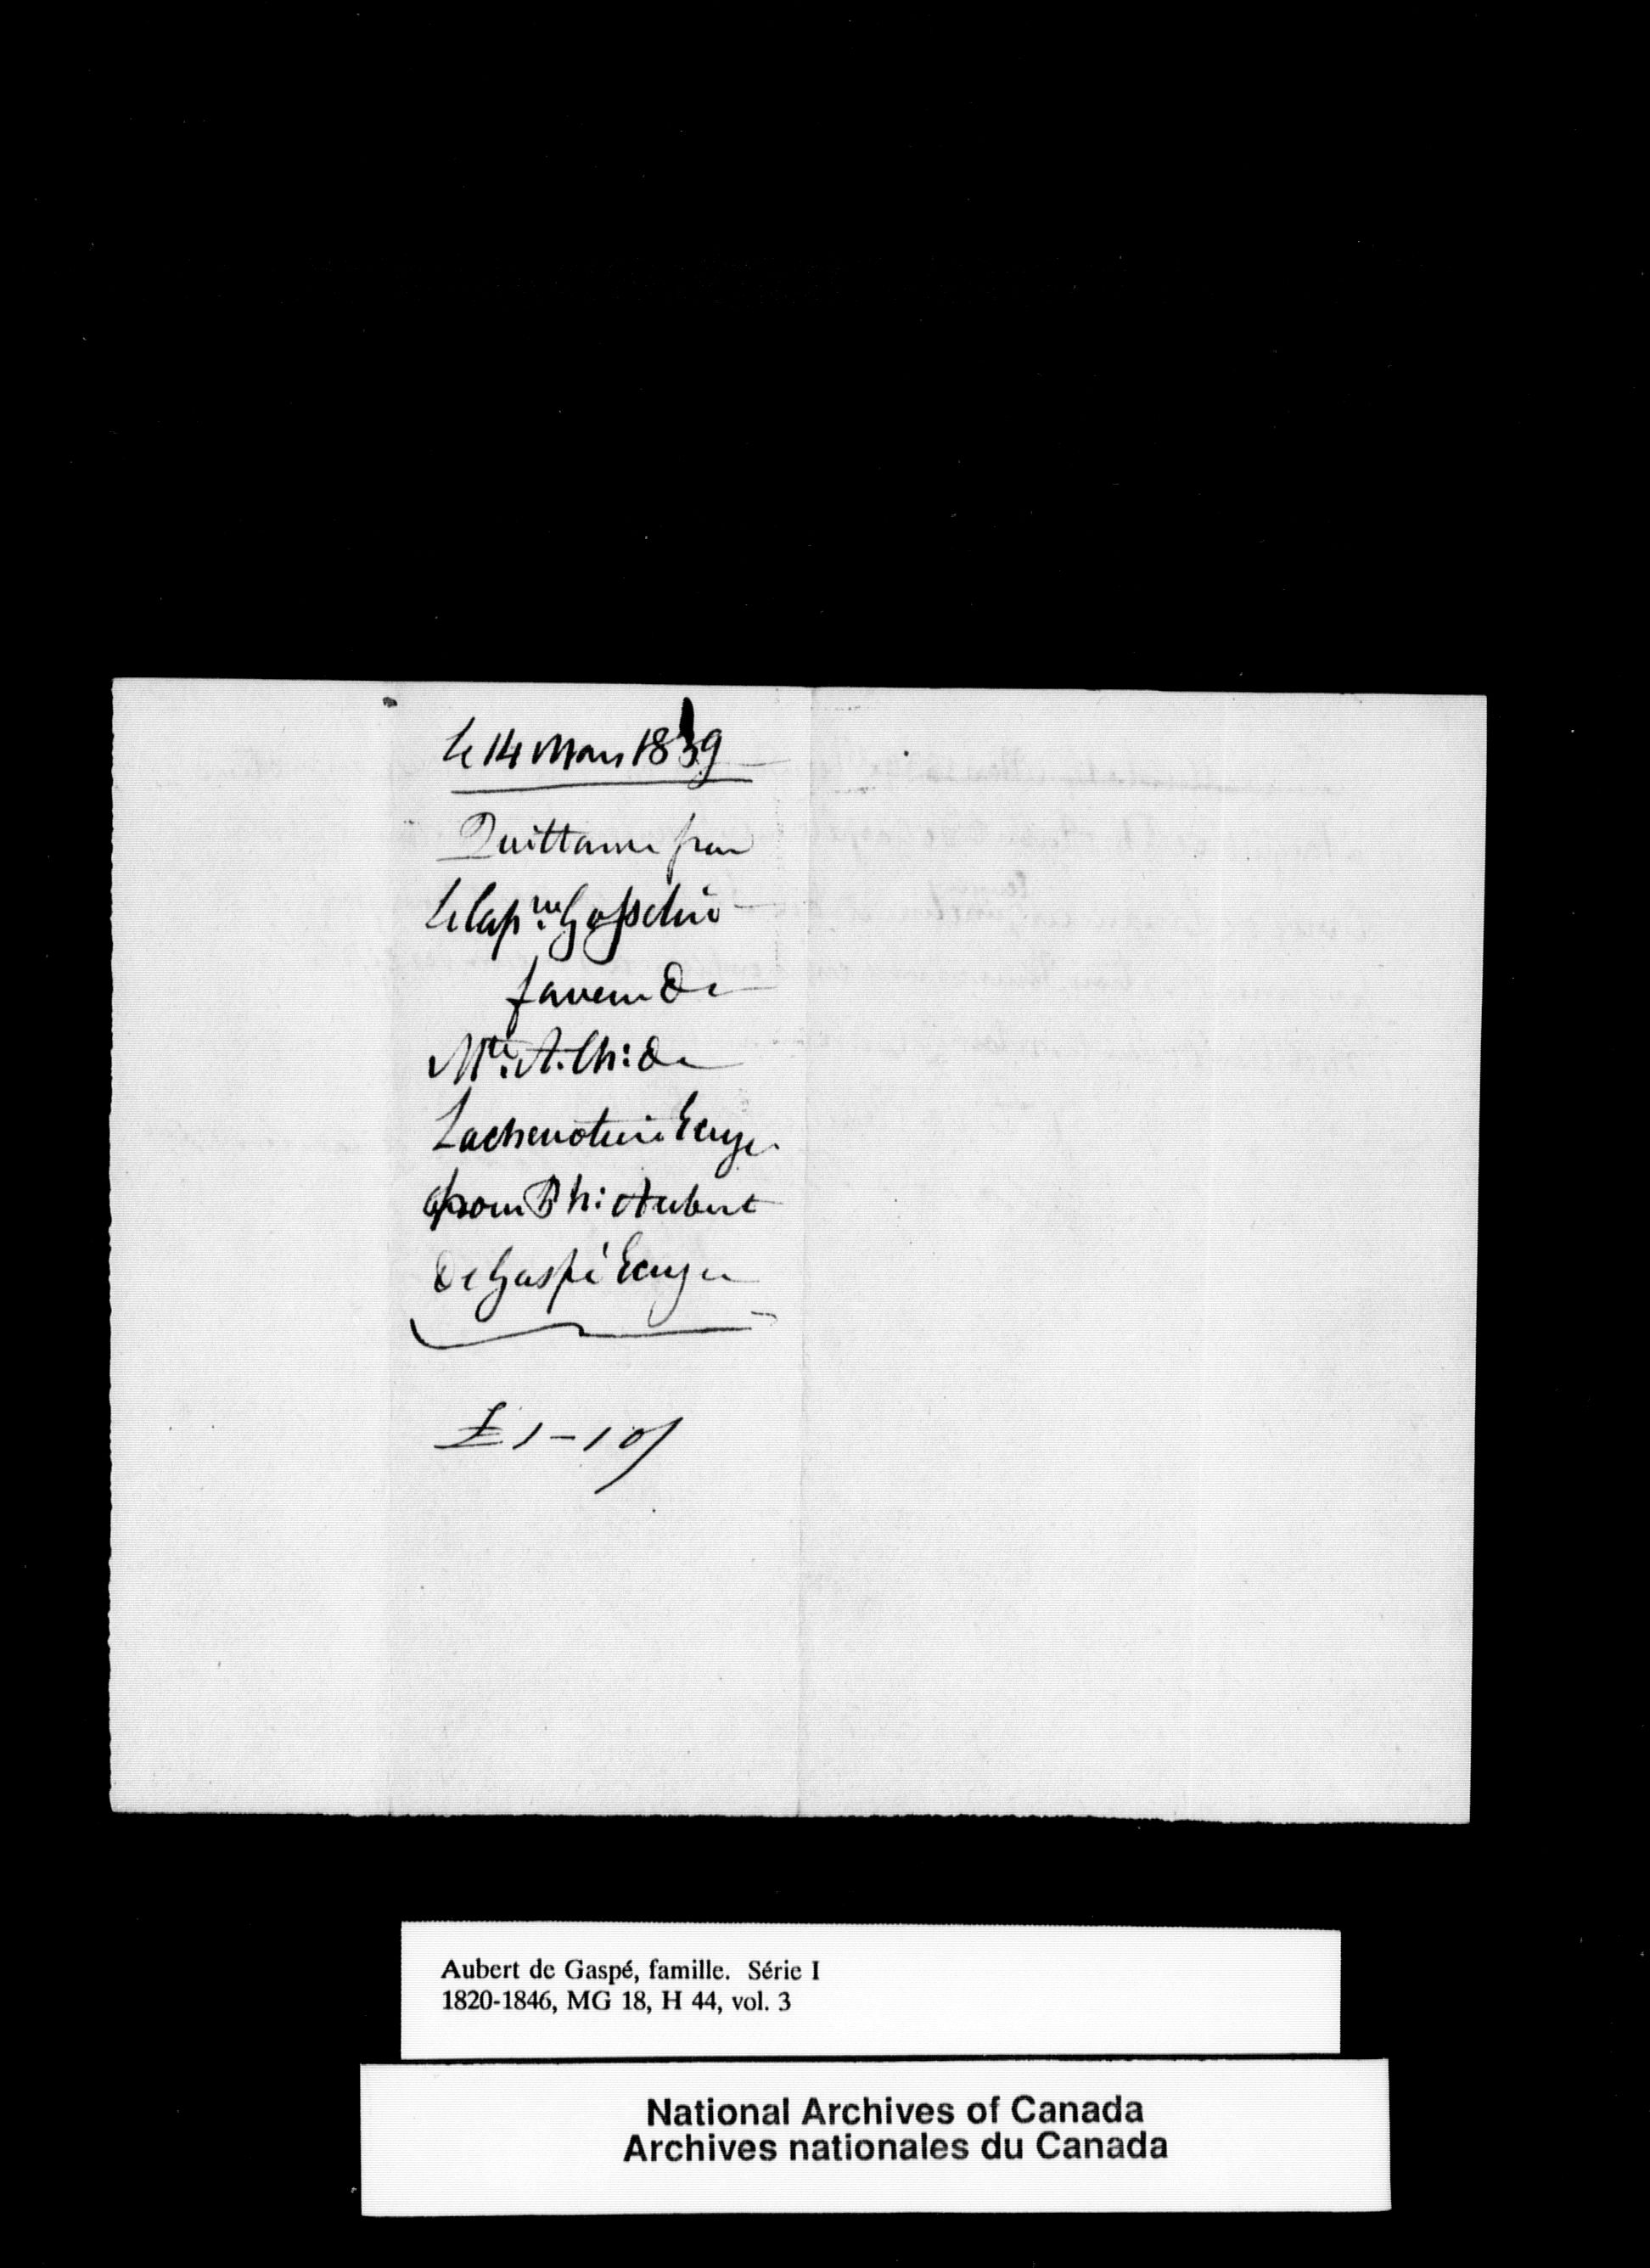 Le 14 Mars 1839
Quittance par
le Cap.ne Gosselin
faveur de
Mte. A. Ch: de
Lachenotiere Ecuyer
pour Ph: Aubert
De Gaspé Ecuyer
£1-10/
Aubert de Gaspé, famille. Série I
1820-1846, MG 18, H 44, vol. 3
National Archives of Canada
Archives nationales du Canada